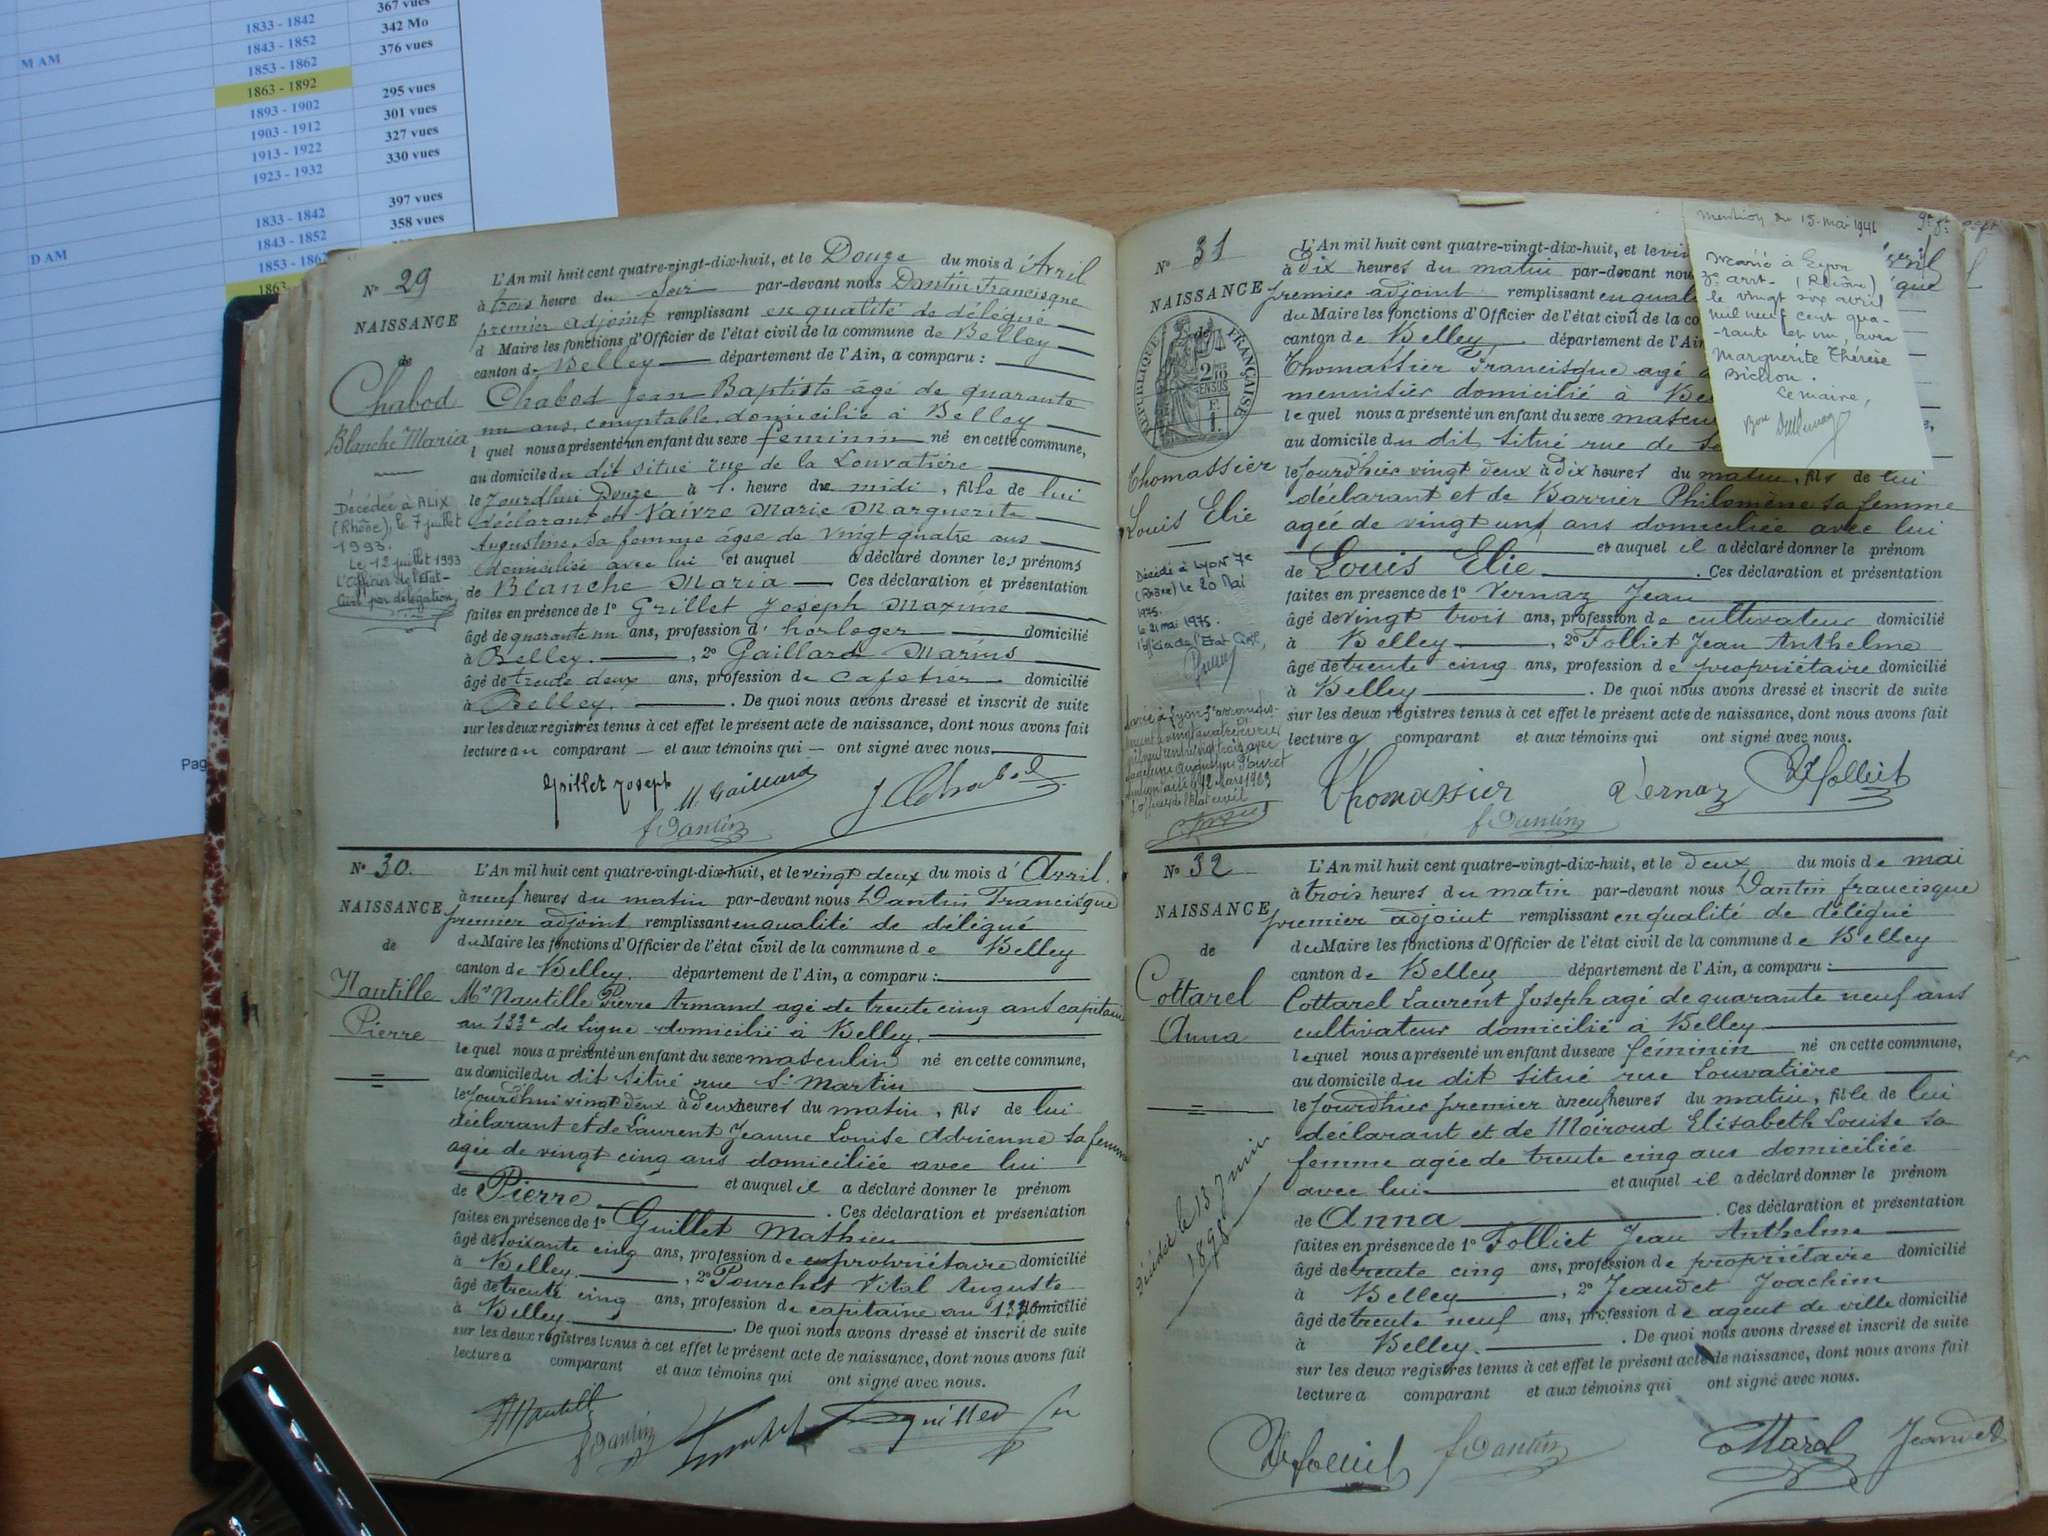 367 vues
1833 - 1842 342 Mo
1843 - 1852 376 vues
M AM 1853 - 1862
1863 - 1892
1893 - 1902 295 vues
1903 - 1912 301 vues
1913 - 1922 327 vues
1923 - 1932 330 vues
1833 - 1842 397 vues
1843 - 1852 358 vues
D AM 1853 - 1862
1863
Pag
N° 29
NAISSANCE
de
Chabod
Blanche Maria
Décédée à ALIX
(Rhône), le 7 juillet
1993.
Le 12 juillet 1993
L'Officier de l'Etat-
Civil par délégation,
L'An mil huit cent quatre-vingt-dix-huit, et le Douze du mois d'Avril
à trois heure du Soir par-devant nous Dantin Francisque
premier adjoint remplissant en qualité de délégué
d Maire les fonctions d'Officier de l'état civil de la commune de Belley
canton de Belley département de l'Ain, a comparu :
Chabod Jean Baptiste âgé de quarante
un ans, comptable, domicilié à Belley
l quel nous a présenté un enfant du sexe féminin né en cette commune,
au domicile du dit situé rue de la Louvatière
le Jourdhui Douze à 1. heure de midi, fille de lui
déclarant et de Vaivre Marie Marguerite
Augustine, sa femme âgée de vingt quatre ans
domiciliée avec lui et auquel a déclaré donner les prénoms
de Blanche Maria Ces déclaration et présentation
faites en présence de 1° Grillet Joseph Maxime
âgé de quarante un ans, profession d'horloger domicilié
à Belley. , 2° Gaillard Marius
âgé de trente deux ans, profession de cafetier domicilié
à Belley. . De quoi nous avons dressé et inscrit de suite
sur les deux registres tenus à cet effet le présent acte de naissance, dont nous avons fait
lecture au comparant — et aux témoins qui — ont signé avec nous.
Grillet Joseph M. Gaillard J Chabod
f Dantin
N° 30.
NAISSANCE
de
Nautille
Pierre
L'An mil huit cent quatre-vingt-dix-huit, et le vingt deux du mois d'Avril.
à neuf heures du matin par-devant nous Dantin Francisque
premier adjoint remplissant en qualité de délégué
du Maire les fonctions d'Officier de l'état civil de la commune de Belley
canton de Belley. département de l'Ain, a comparu :
Mr Nautille Pierre Armand agé de trente cinq ans capitaine
au 133e de ligne domicilié à Belley.
le quel nous a présenté un enfant du sexe masculin né en cette commune,
au domicile du dit situé rue St Martin
le Jourdhui vingt deux à deux heures du matin, fils de lui
déclarant et de Laurent Jeanne Louise Adrienne sa femme
agée de vingt cinq ans domiciliée avec lui
et auquel il a déclaré donner le prénom
de Pierre . Ces déclaration et présentation
faites en présence de 1° Guillet Mathieu
âgé de soixante cinq ans, profession de propriétaire domicilié
à Belley. , 2° Pourchet Vital Auguste
âgé de trente cinq ans, profession de capitaine au 133e domicilié
à Belley . De quoi nous avons dressé et inscrit de suite
sur les deux registres tenus à cet effet le présent acte de naissance, dont nous avons fait
lecture a comparant et aux témoins qui ont signé avec nous.
f Dantin
N° 31
NAISSANCE
de
RÉPUBLIQUE FRANÇAISE
Thomassier
Louis Elie
Décédé à LYON 7e
(Rhône) le 20 Mai
1975.
le 21 mai 1975.
l'officier de l'Etat Civil,
mention du 15 mai 1941
Marié à Lyon
(Rhône)
le vingt six avril
mil neuf cent qua-
-rante et un, avec
Marguerite Thérèse
Bichon.
Le maire,
L'An mil huit cent quatre-vingt-dix-huit, et le
à dix heures du matin par-devant nous
premier adjoint remplissant en
du Maire les fonctions d'Officier de l'état civil de la
canton de Belley département de l'Ain
Thomassier Francisque agé
menuisier domicilié à
le quel nous a présenté un enfant du sexe
au domicile du dit situé rue de
le Jourdhier vingt deux à dix heures du matin, fils de lui
déclarant et de Barrier Philomène sa femme
agée de vingt un ans domiciliée avec lui
et auquel il a déclaré donner le prénom
de Louis Elie . Ces déclaration et présentation
faites en présence de 1° Vernaz Jean
âgé de vingt trois ans, profession de cultivateur domicilié
à Belley , 2° Folliet Jean Anthelme
âgé de trente cinq ans, profession de propriétaire domicilié
à Belley . De quoi nous avons dressé et inscrit de suite
sur les deux registres tenus à cet effet le présent acte de naissance, dont nous avons fait
lecture a comparant et aux témoins qui ont signé avec nous.
Thomassier Vernaz Folliet
f Dantin
N° 32
NAISSANCE
de
Cottarel
Anna
Décédée le 13 Juin
1898
L'An mil huit cent quatre-vingt-dix-huit, et le deux du mois de mai
à trois heures du matin par-devant nous Dantin francisque
premier adjoint remplissant en qualité de délégué
du Maire les fonctions d'Officier de l'état civil de la commune de Belley
canton de Belley département de l'Ain, a comparu :
Cottarel Laurent Joseph agé de quarante neuf ans
cultivateur domicilié à Belley
le quel nous a présenté un enfant du sexe féminin né en cette commune,
au domicile du dit situé rue Louvatière
le Jourdhier premier à neuf heures du matin, fille de lui
déclarant et de Moiroud Elisabeth Louise sa
femme agée de trente cinq ans domiciliée
avec lui et auquel il a déclaré donner le prénom
de Anna . Ces déclaration et présentation
faites en présence de 1° Folliet Jean Anthelme
âgé de trente cinq ans, profession de propriétaire domicilié
à Belley , 2° Jeandet Joachim
âgé de trente neuf ans, profession de agent de ville domicilié
à Belley. . De quoi nous avons dressé et inscrit de suite
sur les deux registres tenus à cet effet le présent acte de naissance, dont nous avons fait
lecture a comparant et aux témoins qui ont signé avec nous.
Folliet f Dantin Cottarel Jeandet